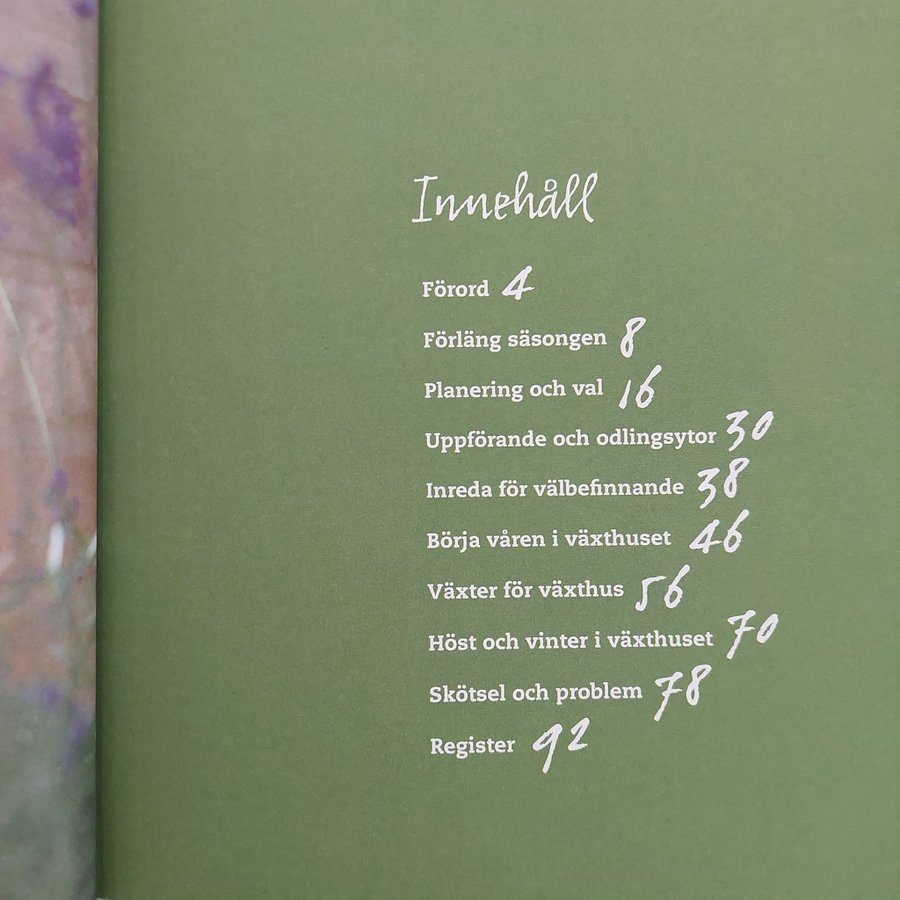 Innehåll
Förord 4
Förläng säsongen 8
Planering och val 16
Uppförande och odlingsytor 30
Inreda för välbefinnande 38
Börja våren i växthuset 46
Växter för växthus 56
Höst och vinter i växthuset 70
Skötsel och problem 78
Register 92